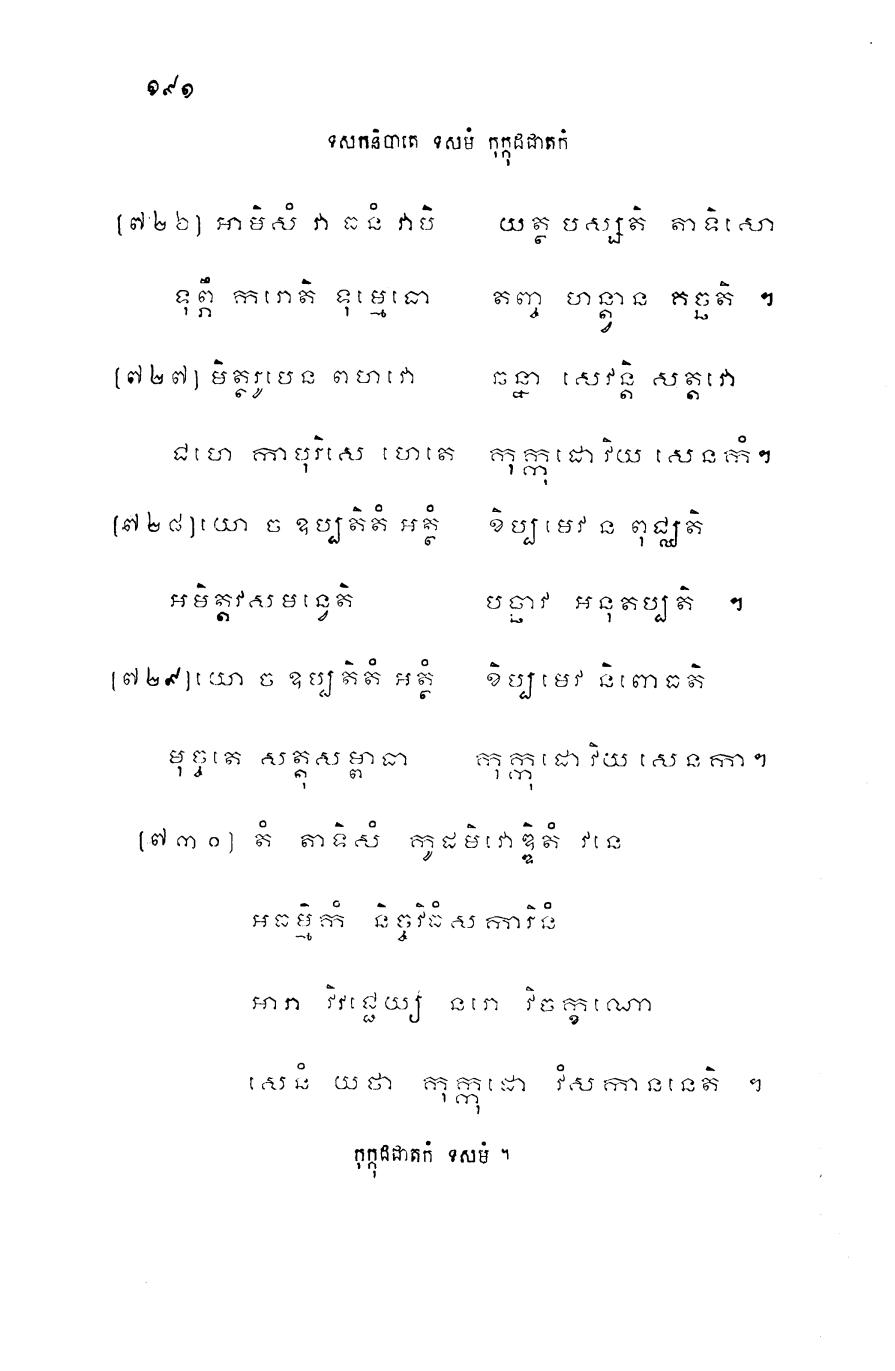 ១៩១
ទសកនិបាតេ ទសមំ កុក្កុដជាតកំ
[៧២៦] អាមិសំ វា ធនំ វាបិ យត្ថ បស្សតិ តាទិសោ
ទុព្ភឹ ករោតិ ទុម្មេធោ តញ្ច ហន្ត្វាន គច្ឆតិ ។
[៧២៧] មិត្តរូបេន ពហវោ ឆន្នា សេវន្តិ សត្តវោ
ជហេ កាបុរិសេ ហេតេ កុក្កុដោ វិយ សេនកំ។
[៧២៨] យោ ច ឧប្បតិតំ អត្ថំ ខិប្បមេវ ន ពុជ្ឈតិ
អមិត្តវសមន្វេតិ បច្ឆាវ អនុតប្បតិ ។
[៧២៩] យោ ច ឧប្បតិតំ អត្ថំ ខិប្បមេវ និពោធតិ
មុច្ចតេ សត្តុសម្ពាធា កុក្កុដោ វិយ សេនកា។
[៧៣០] តំ តាទិសំ កូដមិវោឌ្ឌិតំ វនេ
អធម្មិកំ និច្ចវិធំសការិនំ
អារា វិវជ្ជេយ្យ នរោ វិចក្ខណោ
សេនំ យថា កុក្កុដោ វំសកាននេតិ ។
កុក្កុដជាតកំ ទសមំ ។